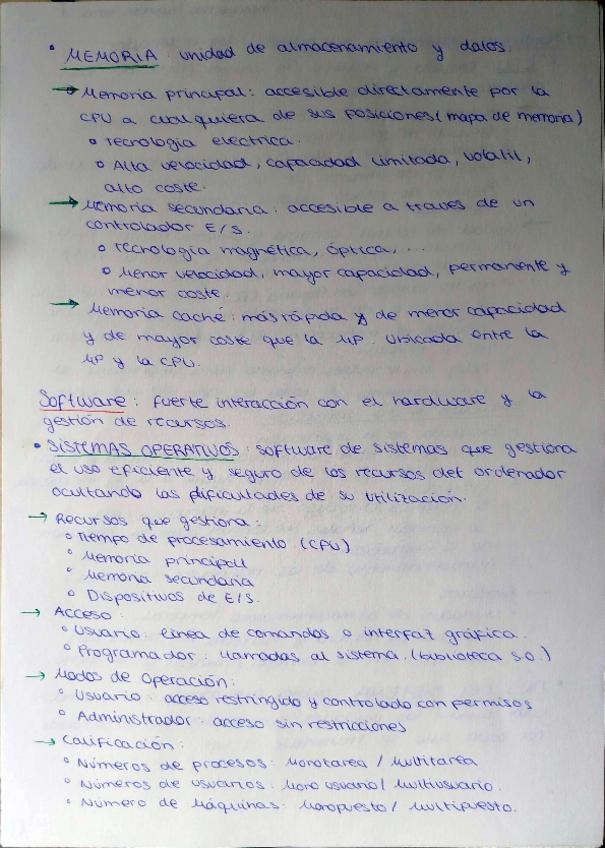 • MEMORIA : unidad de almacenamiento y datos.
→ Memoria principal : accesible directamente por la
CPU a cualquiera de sus posiciones (mapa de memoria)
∘ Tecnología eléctrica.
∘ Alta velocidad, capacidad limitada, volátil,
alto coste.
→ Memoria secundaria : accesible a través de un
controlador E/S.
∘ Tecnología magnética, óptica, ...
∘ Menor velocidad, mayor capacidad, permanente y
menor coste.
→ Memoria caché : más rápida y de menor capacidad
y de mayor coste que la MP. Ubicada entre la
MP y la CPU.
Software : fuerte interacción con el hardware y la
gestión de recursos.
• SISTEMAS OPERATIVOS : software de sistemas que gestiona
el uso eficiente y seguro de los recursos del ordenador
ocultando las dificultades de su utilización.
→ Recursos que gestiona :
∘ Tiempo de procesamiento (CPU)
∘ Memoria principal
∘ Memoria secundaria
∘ Dispositivos de E/S.
→ Acceso :
∘ Usuario : línea de comandos o interfaz gráfica.
∘ Programador : llamadas al sistema. (biblioteca S.O.)
→ Modos de Operación :
∘ Usuario : acceso restringido y controlado con permisos
∘ Administrador : acceso sin restricciones
→ Calificación :
∘ Números de procesos : Monotarea / Multitarea
∘ Números de usuarios : Mono usuario / Multiusuario.
∘ Número de Máquinas : Monopuesto / Multipuesto.